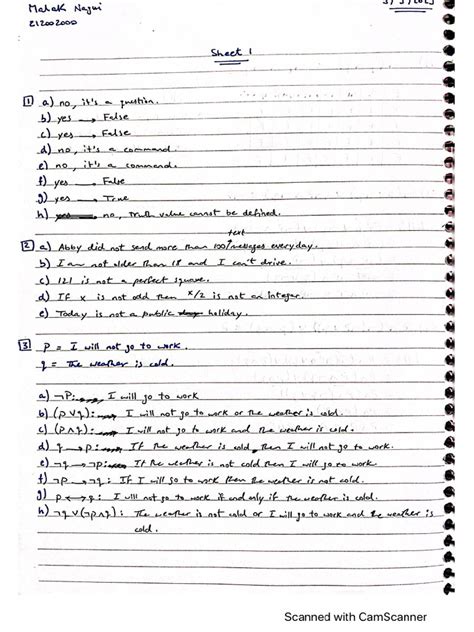 Malak Nagui
21200200
3/3/2023
Sheet 1
1 a) no, it's a question.
b) yes → False
c) yes → False
d) no, it's a command.
e) no, it's a command.
f) yes → False
g) yes → True
h) no, truth value cannot be defined.
text
2 a) Abby did not send more than 100 messages everyday.
b) I am not older than 18 and I can't drive.
c) 121 is not a perfect square.
d) IF x is not odd then x/2 is not an integer.
e) Today is not a public holiday.
3 P = I will not go to work.
q = The weather is cold.
a) ¬P: I will go to work
b) (p∨q): I will not go to work or the weather is cold.
c) (p∧q): I will not go to work and the weather is cold.
d) q → p: If the weather is cold, then I will not go to work.
e) ¬q → ¬p: If the weather is not cold then I will go to work
f) ¬p → ¬q: If I will go to work then the weather is not cold.
g) p ↔ q: I will not go to work if and only if the weather is cold.
h) ¬q ∨ (¬p ∧ q): The weather is not cold or I will go to work and the weather is
cold.
Scanned with CamScanner